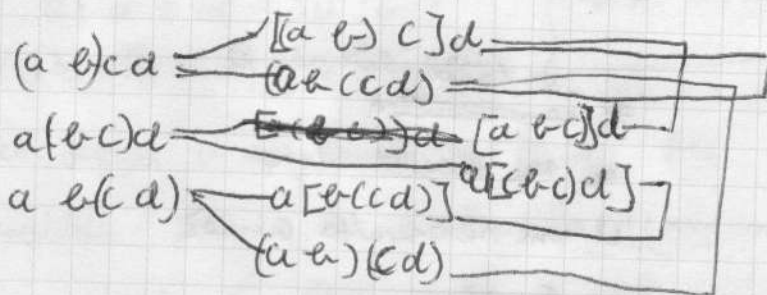 (a b)cd = [(a b) c]d
= (ab(cd)
a(bc)d = [a bc]d
a[(bc)d]
a b(cd) a[b(cd)]
(a b)(cd)